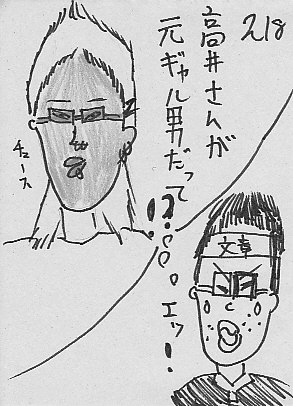 2/8
高井さんが
元ギャル男だって
!?。。。エッ!
チュース
文章